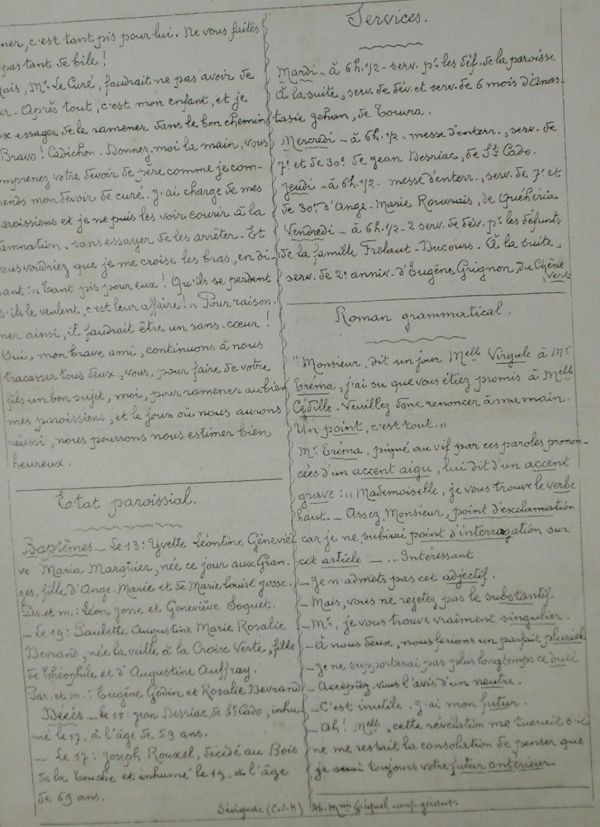 ner, c'est tant pis pour lui. Ne vous faites
pas tant de bile !
Mais, Mr. Le Curé, faudrait ne pas avoir de
. Après tout, c'est mon enfant, et je
essayer de le ramener dans le bon chemin
Bravo ! Cadichon. Donnez-moi la main, vous
comprenez votre devoir de père comme je com-
prends mon devoir de curé. J'ai charge de mes
paroissiens et je ne puis les voir courir à la
damnation, sans essayer de les arrêter. Et
vous voudriez que je me croise les bras, en di-
sant : "Tant pis pour eux ! Qu'ils se perdent
s'ils le veulent, c'est leur affaire !" Pour raison-
ner ainsi, il faudrait être un sans-cœur !
Oui, mon brave ami, continuons à nous
tracasser tous deux, vous, pour faire de votre
fils un bon sujet, moi, pour ramener au bien
mes paroissiens, et le jour où nous aurons
réussi, nous pourrons nous estimer bien
heureux.
Etat paroissial.
Baptêmes - Le 13 : Yvette Léontine Geneviè
ve Maria Marquier, née ce jour aux Gran-
ges, fille d'Ange Marie et de Marie Louise Josse.
Par. et m. : Léon Josse et Geneviève Soquet.
- Le 19 : Paulette Augustine Marie Rosalie
Devrand, née la veille à la Croix Verte, fille
de Théophile et d'Augustine Auffray.
Par. et m. : Eugène Godin et Rosalie Devrand
Décès - Le 15 : Jean Desriac, de St Cado, inhu-
mé le 17, à l'âge de 59 ans.
- Le 17 : Joseph Rouxel, décédé au Bois
de la Touche et inhumé le 19, à l'âge
de 69 ans.
Services.
Mardi - à 6h.1/2 - serv. pr. les déf. de la paroisse
À la suite, serv. de dév. et serv. de 6 mois d'Anas-
tasie Jehan, de
Mercredi - à 6h.1/2 - messe d'enterr., serv. de
7e. et de 30e. de Jean Desriac, de St Cado.
Jeudi - à 6h.1/2 - messe d'enterr., serv. de 7e. et
de 30e. d'Ange-Marie Rouxnais, de Guéhéria
Vendredi - à 6h.1/2 - 2 serv. de dév. pr. les défunts
de la famille Frélaut-Ducours. À la suite,
serv. de 2e. anniv. d'Eugène Grignon, du Chêne
vert
Roman grammatical.
"Monsieur, dit un jour Melle Virgule à Mr
Tréma, j'ai su que vous étiez promis à Melle
Cédille. Veuillez donc renoncer à ma main.
Un point, c'est tout."
Mr. Tréma, piqué au vif par ces paroles pronon-
cées d'un accent aigu, lui dit d'un accent
grave : "Mademoiselle, je vous trouve le verbe
haut. - Assez, Monsieur, point d'exclamation
car je ne subirai point d'interrogation sur
cet article - ... Intéressant
- Je n'admets pas cet adjectif.
- Mais, vous ne rejetez pas le substantif.
- Mr., je vous trouve vraiment singulier.
- À nous deux, nous ferons un parfait pluriel
- Je ne supporterai pas plus longtemps ce duel
- Acceptez-vous l'avis d'un neutre.
- C'est inutile. J'ai mon futur.
- Ah ! Melle, cette révélation me tuerait s'il
ne me restait la consolation de penser que
je suis toujours votre futur antérieur.
Sévignac (C.d.N) Ab. Mme Gicquel imp. gérant.